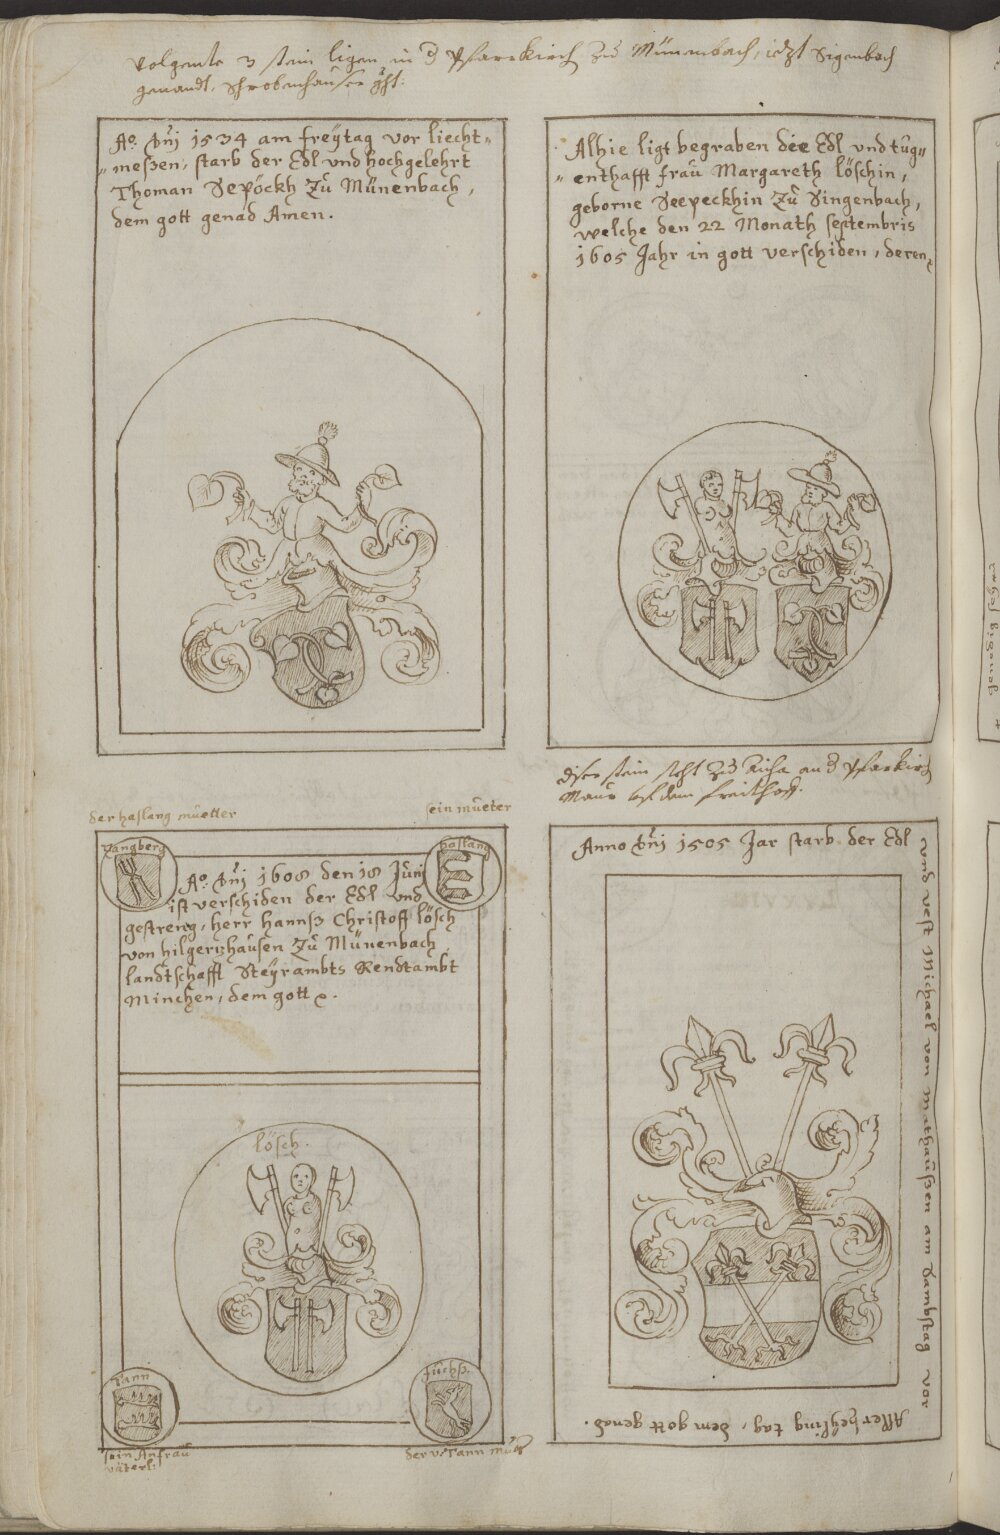 Volgente 3 stain ligen in d Pfarrkirch Zů Münenbach, iezt Sigenbach
genandt, Schrobenhauser ght:
Aº. Dnj 1534 am freÿtag vor liecht-
meßen, starb der Edl und hochgelehrt
Thoman Sepöckh Zů Münenbach,
dem gott genad Amen.
Alhie ligt begraben die Edl und tůg„
„enthafft fraů Margareth löschin,
geborne Seepeckhin Zů Singenbach,
welche den 22 Monath septembris
1605 Jahr in gott verschiden, deren
diser stain steht Zů Aicha an d Pfarkirch
Maur auf dem freithoff.
der haslang můetter
ein můeter
Pangberg
haslang
Aº. Dnj 1608 den 18 Jůnj
ist verschiden der Edl und
gestreng, herr hannß Christoff lösch
von hilgertzhaůsen Zů Münenbach
landtschafft Steÿrambts Rendtambt
Minchen, dem gott
lösch.
Tann
fůchß.
sein Anfraů
väterl:
der v. Tann můe
Anno Dnj 1505 Jar starb der Edl
und vest Michael von mathaůßen am Sambstag vor
Allerheÿling tag, dem gott genad.
genedig seÿ